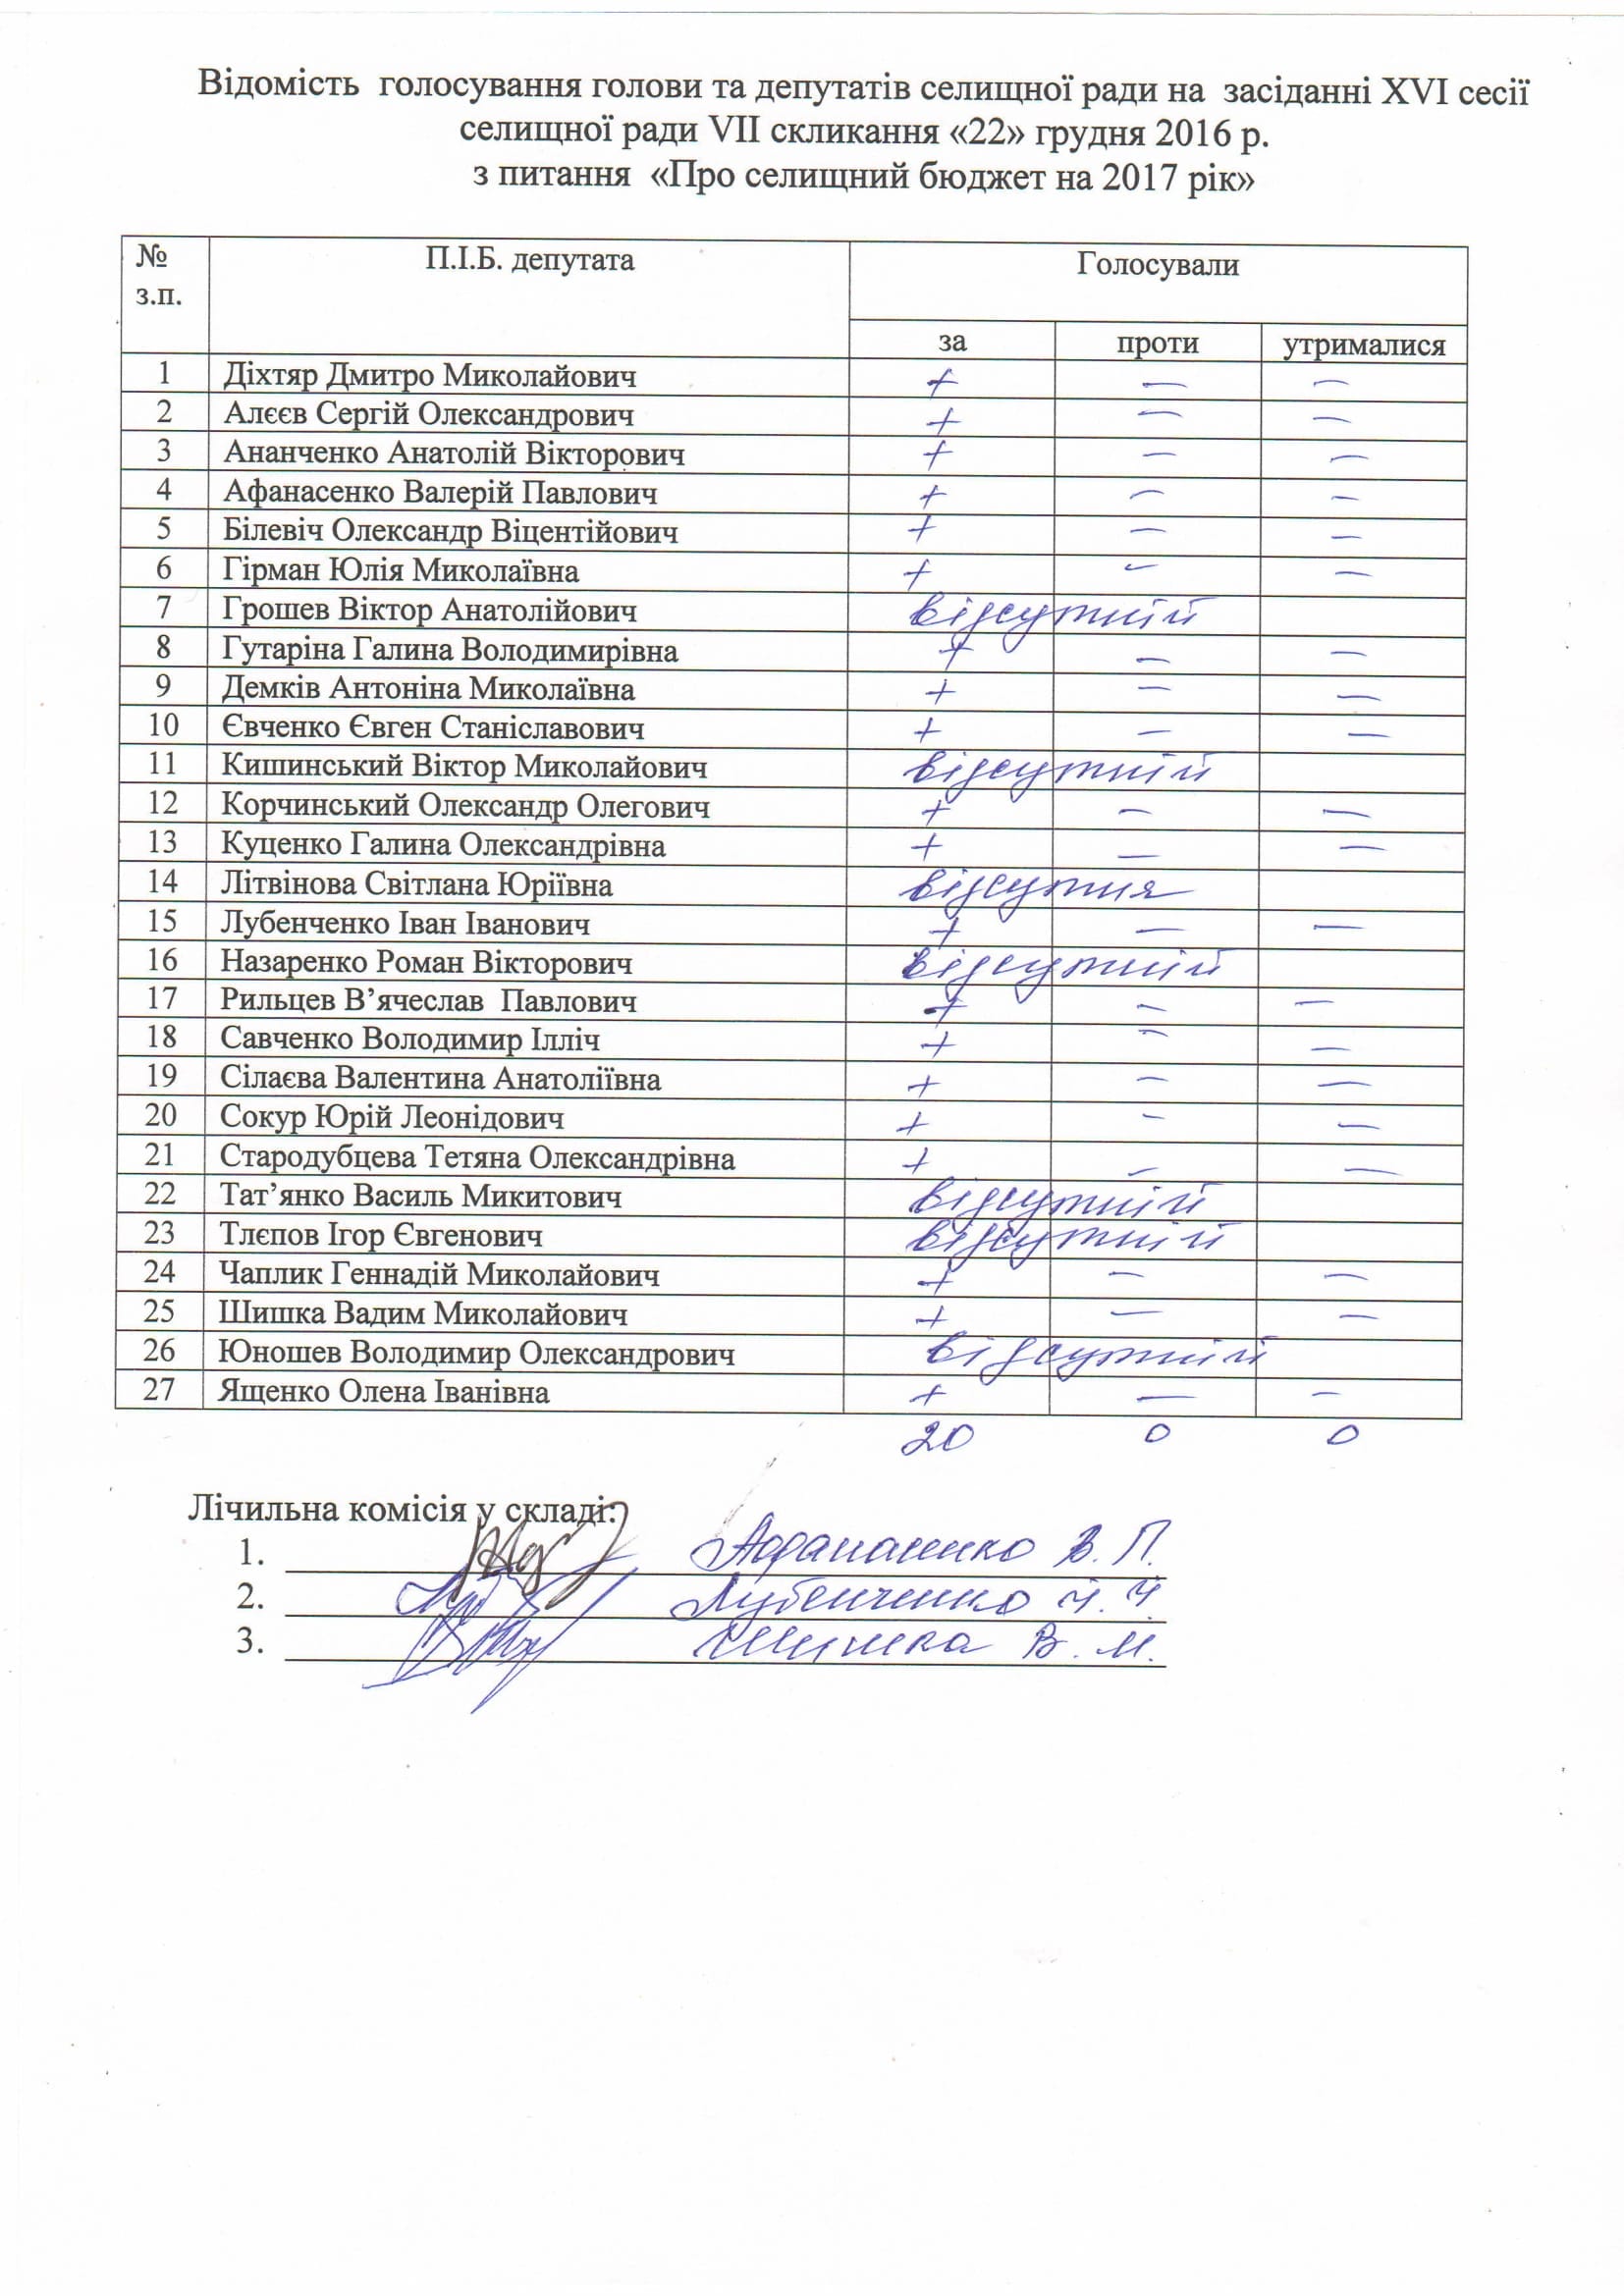 Відомість голосування голови та депутатів селищної ради на засіданні XVI сесії
селищної ради VII скликання «22» грудня 2016 р.
з питання «Про селищний бюджет на 2017 рік»
№ з.п. П.І.Б. депутата Голосували
за проти утрималися
1 Діхтяр Дмитро Миколайович + — —
2 Алєєв Сергій Олександрович + — —
3 Ананченко Анатолій Вікторович + — —
4 Афанасенко Валерій Павлович + — —
5 Білевіч Олександр Віцентійович + — —
6 Гірман Юлія Миколаївна + — —
7 Грошев Віктор Анатолійович відсутній
8 Гутаріна Галина Володимирівна + — —
9 Демків Антоніна Миколаївна + — —
10 Євченко Євген Станіславович + — —
11 Кишинський Віктор Миколайович відсутній
12 Корчинський Олександр Олегович + — —
13 Куценко Галина Олександрівна + — —
14 Літвінова Світлана Юріївна відсутня
15 Лубенченко Іван Іванович + — —
16 Назаренко Роман Вікторович відсутній
17 Рильцев В’ячеслав Павлович + — —
18 Савченко Володимир Ілліч + — —
19 Сілаєва Валентина Анатоліївна + — —
20 Сокур Юрій Леонідович + — —
21 Стародубцева Тетяна Олександрівна + — —
22 Тат’янко Василь Микитович відсутній
23 Тлєпов Ігор Євгенович відсутній
24 Чаплик Геннадій Миколайович + — —
25 Шишка Вадим Миколайович + — —
26 Юношев Володимир Олександрович відсутній
27 Ященко Олена Іванівна + — —
20 0 0
Лічильна комісія у складі:
1. Афанасенко В. П.
2. Лубенченко І. І.
3. Шишка В. М.